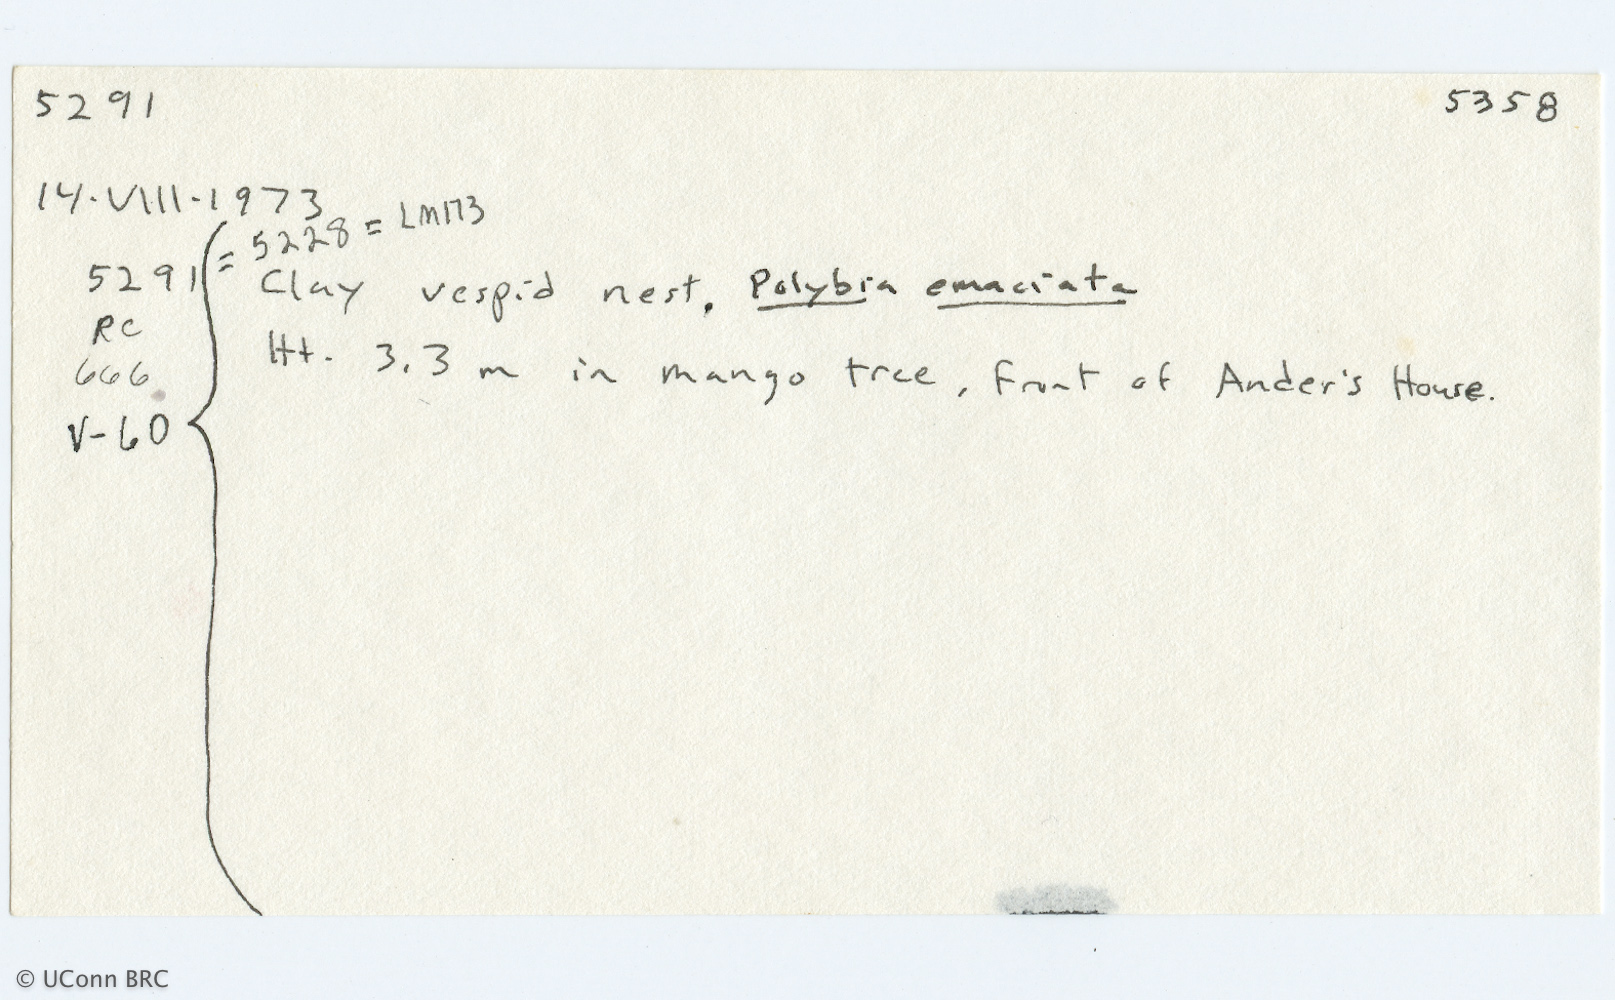 5291 5358
14·VIII·1973
= 5228 = LM173
5291 Clay vespid nest. Polybia emaciata
RC
Ht. 3.3 m in mango tree, front of Ander's House.
666
V-60
© UConn BRC